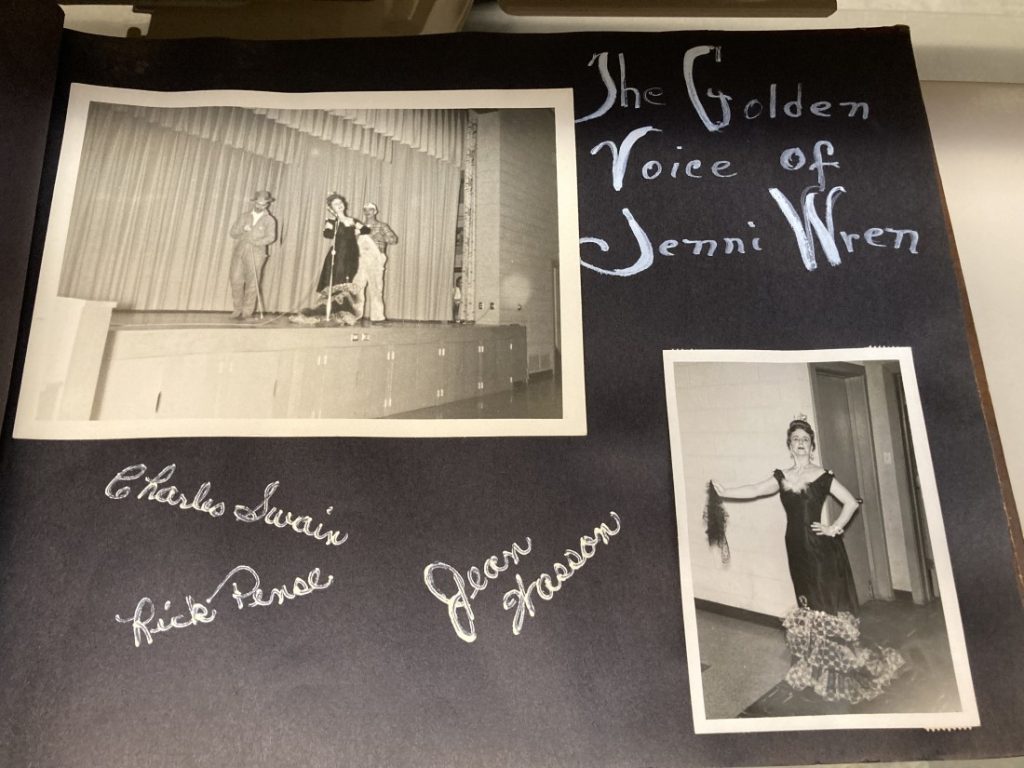 The Golden
Voice of
Jenni Wren
Charles Swain
Rick Pense
Jean
Wasson